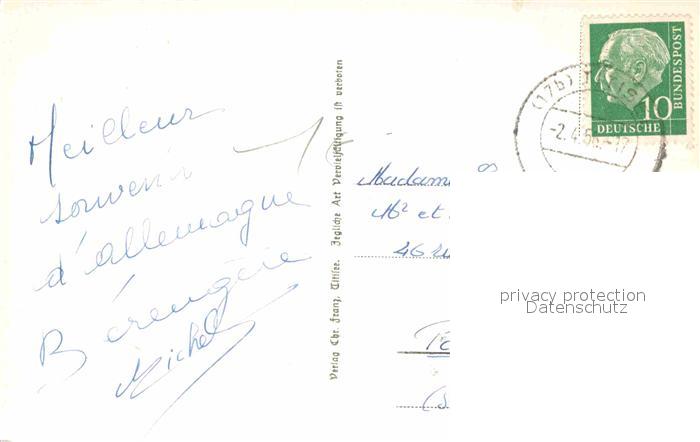 Meilleur
souvenir
d'allemagne
Bérengère
Michel
Verlag Chr. Franz, Titisee. Jegliche Art Vervielfältigung ist verboten
Madame
M² et
46
BUNDESPOST
10
DEUTSCHE
(17b)
-2.4.5
-17
privacy protection
Datenschutz